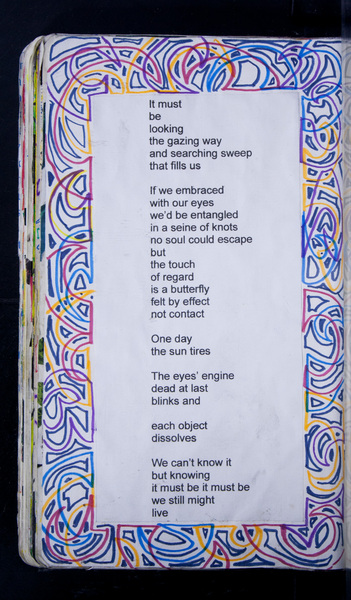 It must
be
looking
the gazing way
and searching sweep
that fills us
If we embraced
with our eyes
we'd be entangled
in a seine of knots
no soul could escape
but
the touch
of regard
is a butterfly
felt by effect
not contact
One day
the sun tires
The eyes' engine
dead at last
blinks and
each object
dissolves
We can't know it
but knowing
it must be it must be
we still might
live